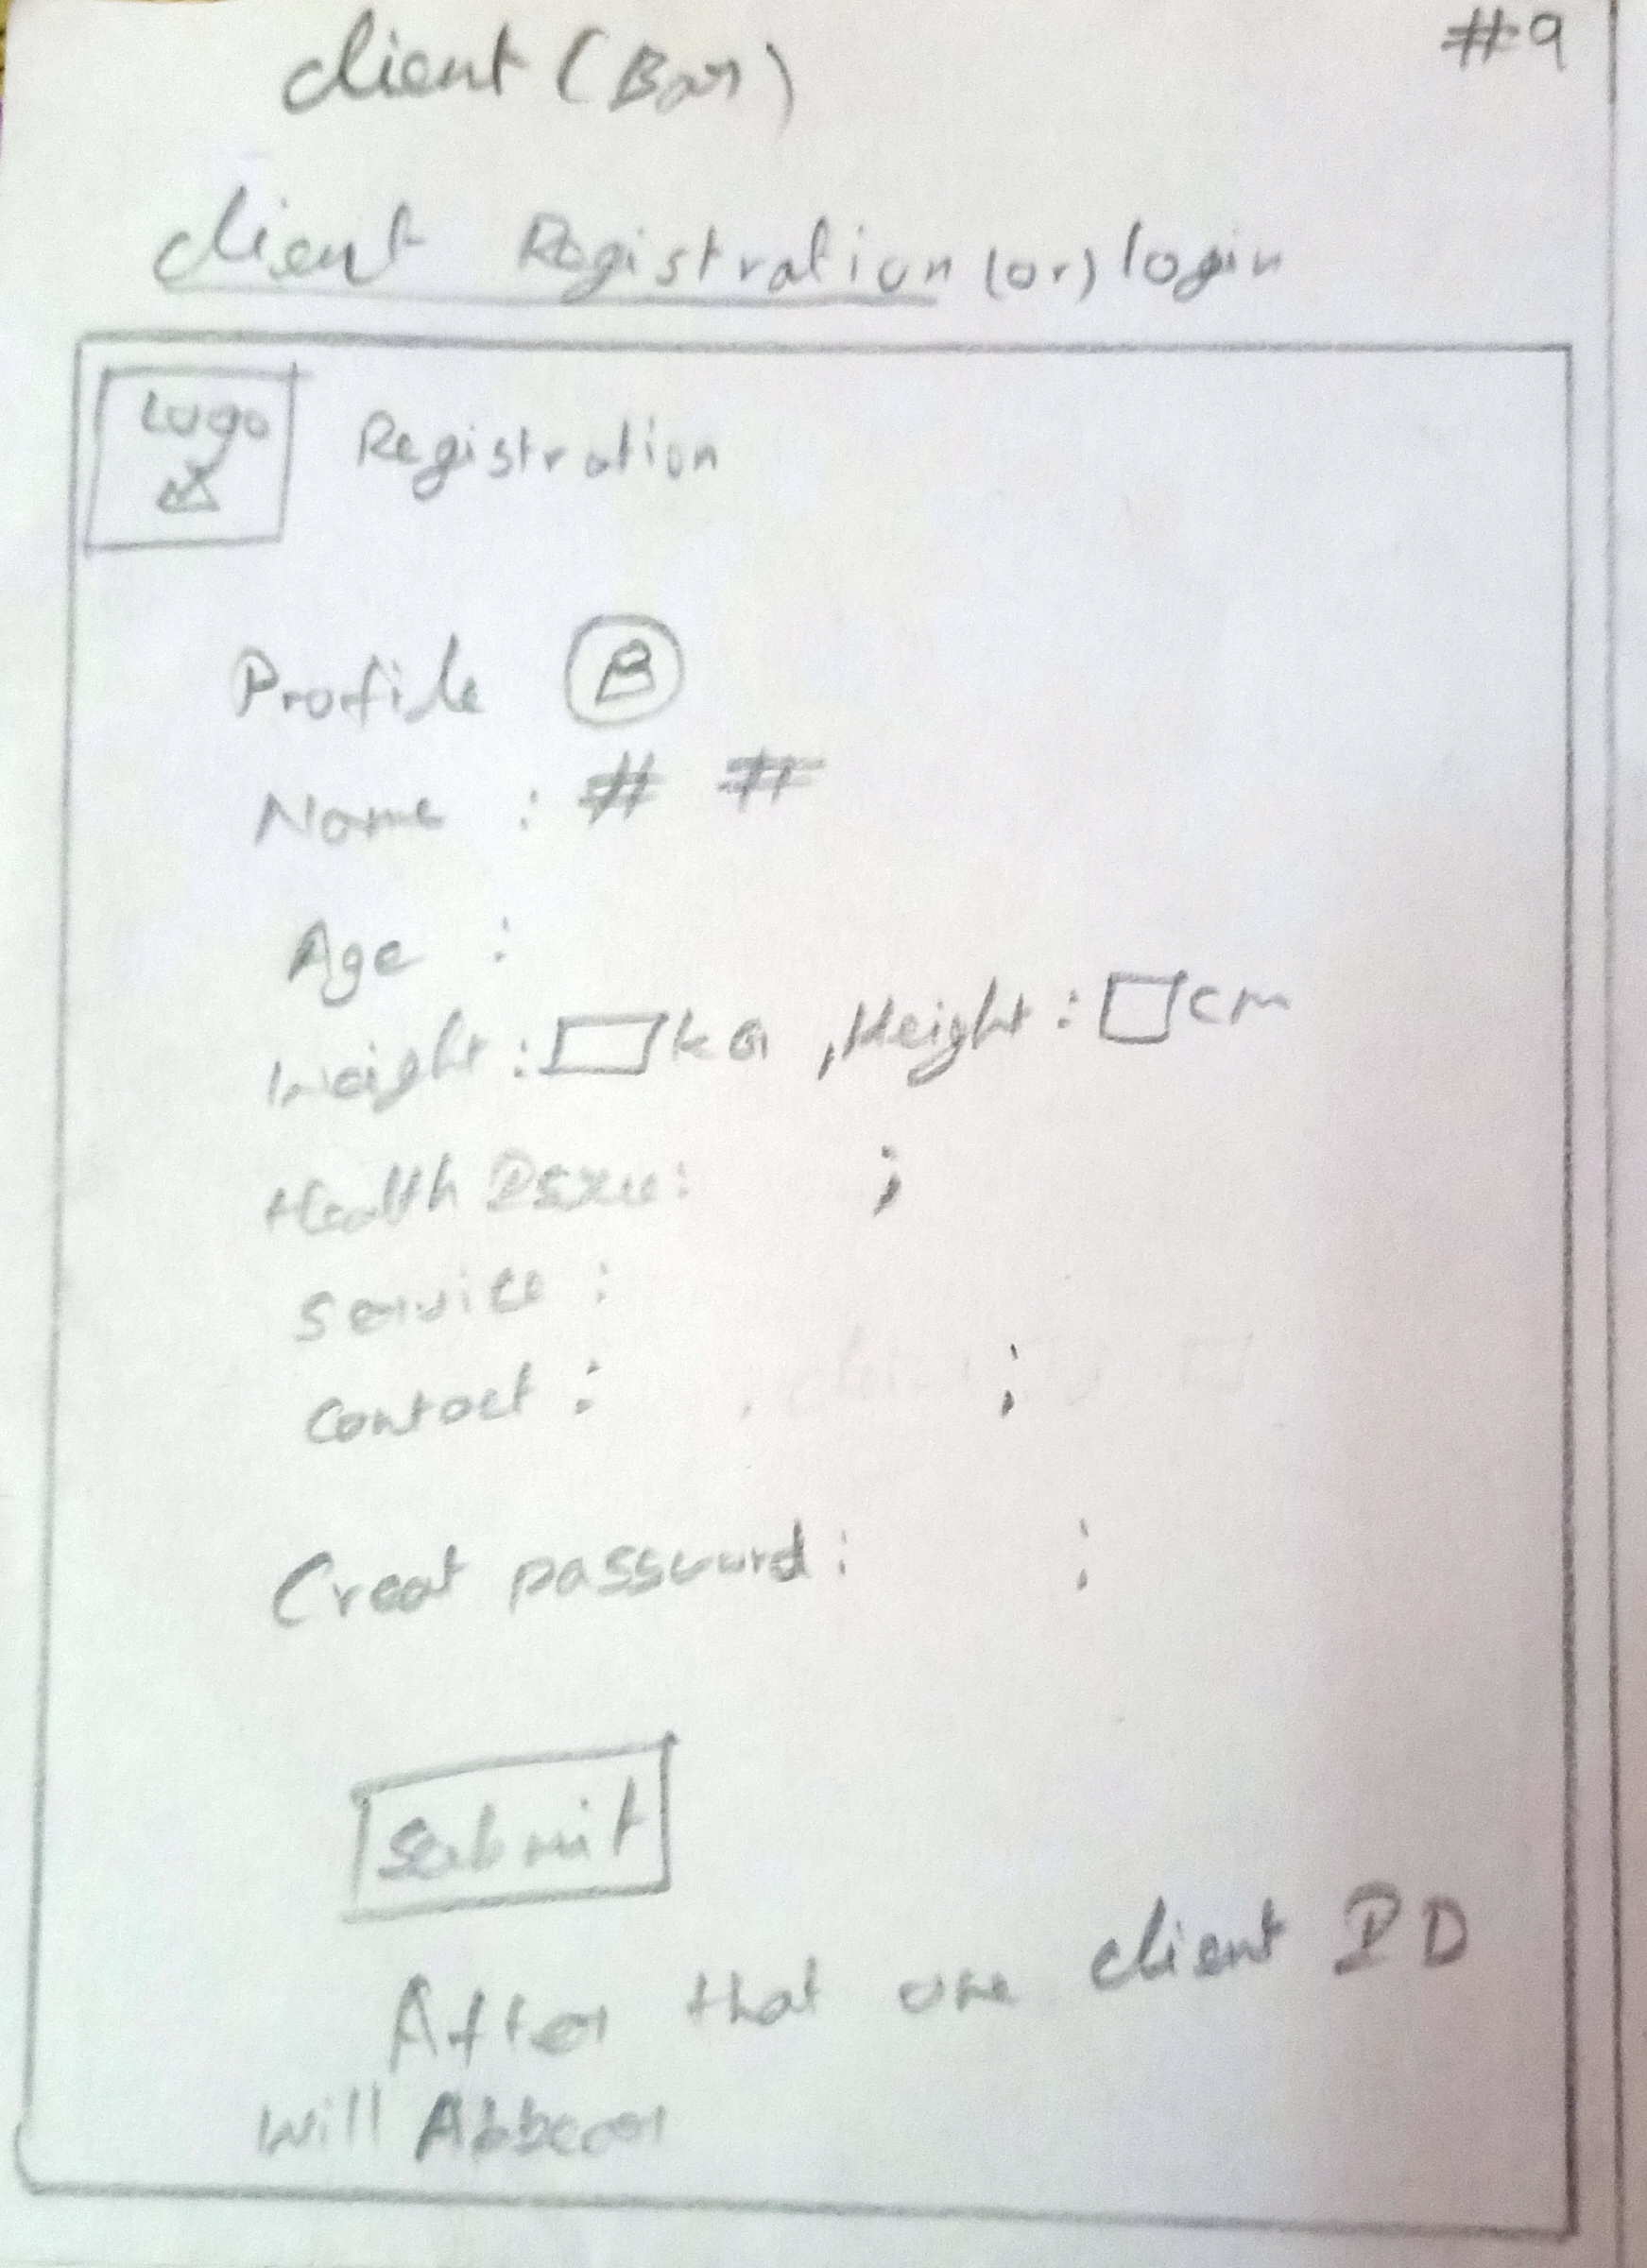 client (Bar)
#9
client Registration (or) login
Logo
Registration
Profile
Name : # #
Age :
Weight : kg , Height : cm
Health Issue : ;
Service :
Contact : ;
Creat password : :
Submit
After that one client ID
will Appear